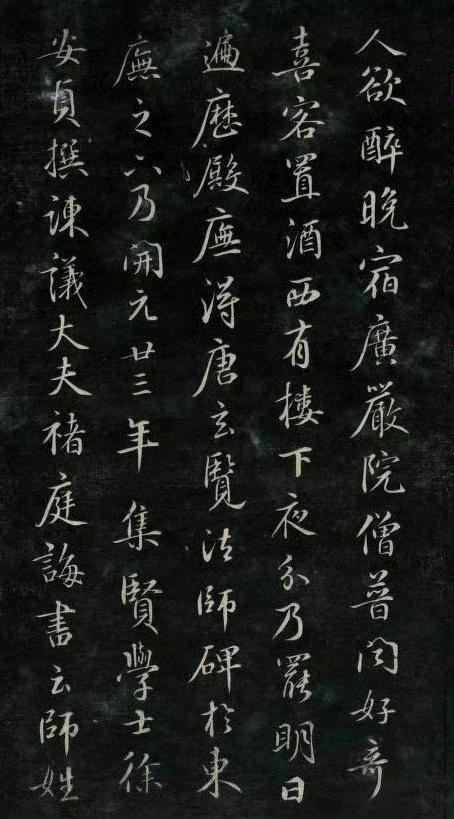 人欲醉晚宿廣嚴院僧普聞好奇
喜客置酒西有樓下夜分乃罷明日
遍歷殿廡得唐玄覽法師碑於東
廡之下乃開元廿三年集賢學士徐
安貞撰諫議大夫褚庭誨書云師姓